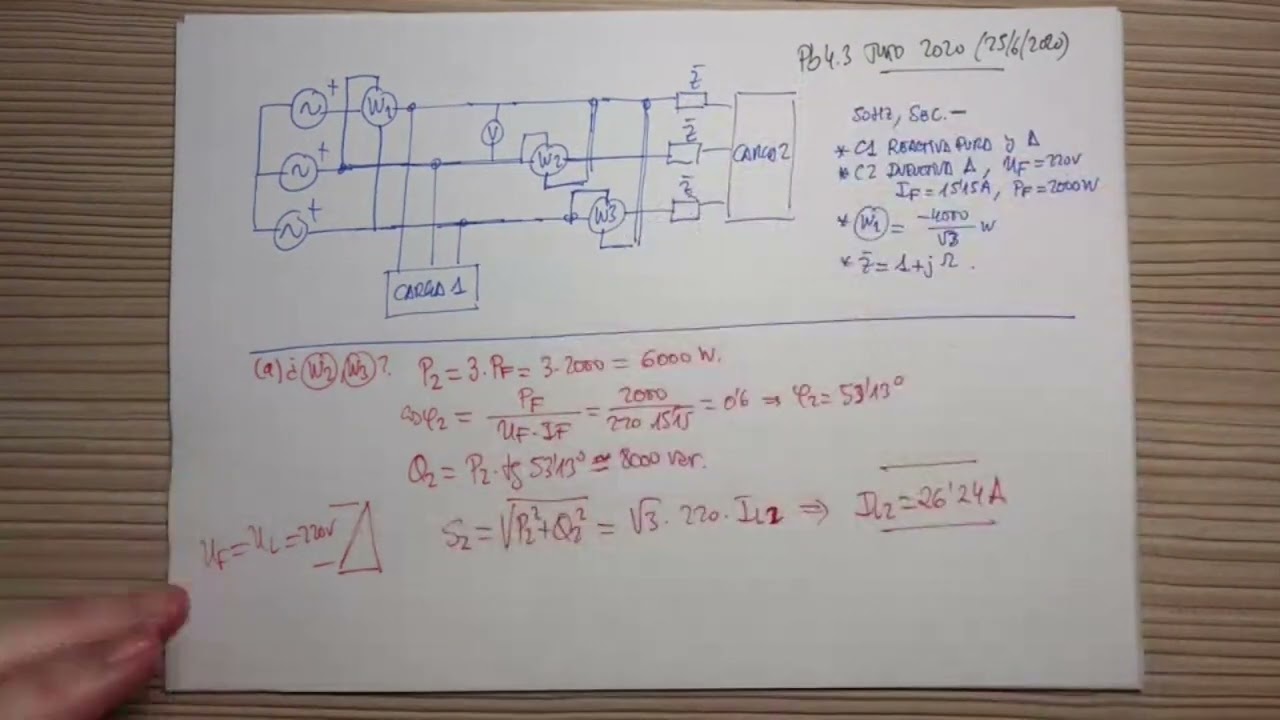 Pb4.3 JUNIO 2020 (25/6/2020)
+ W1 Z̄
50Hz, SBC.-
V Z̄
* C1 REACTIVA PURA y Δ
+ W2 CARGA 2
* C2 INDUCTIVA Δ, UF=220V
IF=15'15A, PF=2000W
+ W3 Z̄
* W1 = -4000/√3 W
* Z̄=1+j Ω.
CARGA 1
(a) ¿ W2, W3? P2=3·PF=3·2000=6000W.
cosφ2 = PF/UF·IF = 2000/220·15'15 = 0'6 ⇒ φ2=53'13°
Q2 = P2·tg 53'13° ≃ 8000 var.
UF=UL=220V S2=√P2²+Q2² = √3·220·IL2 ⇒ IL2=26'24A